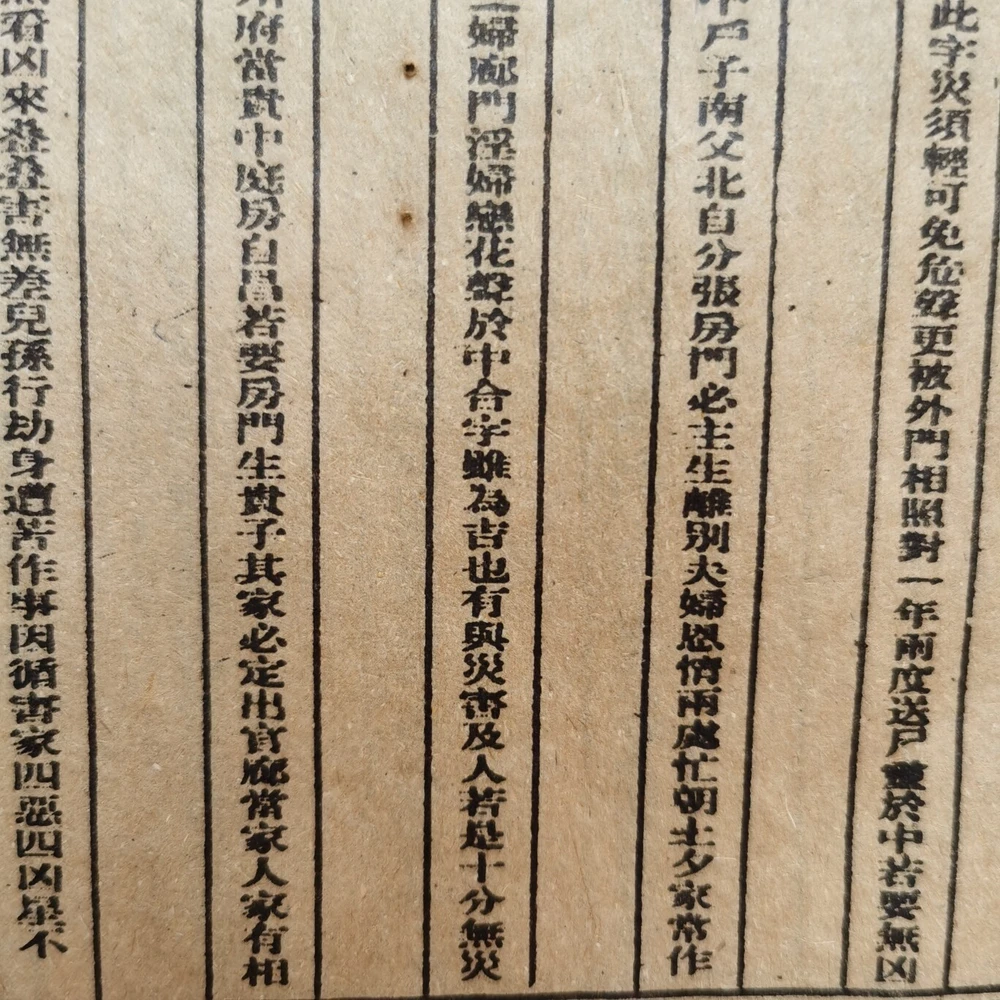 此字災須輕可免危聲更被外門相照對一年兩度送尸靈於中若要無凶
戶子南父北自分張房門必主生離別夫婦恩情兩處忙朝土夕家常作
婦廊門淫婦戀花聲於中合字雖為吉也有與災害及人若是十分無災
府當貴中庭房自昌若要房門生貴子其家必定出官廊當家人家有相
看凶來叠叠害無差兒孫行劫身遭苦作事因循害家四惡四凶星不